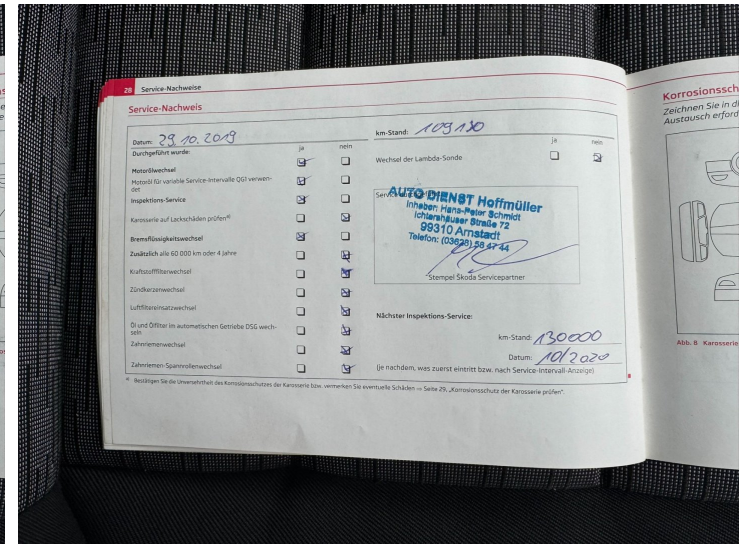 28 Service-Nachweise
Service-Nachweis
Datum: 29.10.2019
km-Stand: 109130
Durchgeführt wurde:
ja nein
ja nein
Motorölwechsel
Wechsel der Lambda-Sonde
Motoröl für variable Service-Intervalle QG1 verwen-
det
Inspektions-Service
Karosserie auf Lackschäden prüfen a)
Bremsflüssigkeitswechsel
Zusätzlich alle 60 000 km oder 4 Jahre
Kraftstofffilterwechsel
Zündkerzenwechsel
Luftfiltereinsatzwechsel
Öl und Ölfilter im automatischen Getriebe DSG wech-
seln
Zahnriemenwechsel
Zahnriemen-Spannrollenwechsel
AUTO DIENST Hoffmüller
Inhaber: Hans-Peter Schmidt
Ichtershäuser Straße 72
99310 Arnstadt
Telefon: (03628) 58 47 44
Stempel Škoda Servicepartner
Nächster Inspektions-Service:
km-Stand: 130000
Datum: 10/2020
(je nachdem, was zuerst eintritt bzw. nach Service-Intervall-Anzeige)
a) Bestätigen Sie die Unversehrtheit des Korrosionsschutzes der Karosserie bzw. vermerken Sie eventuelle Schäden ⇒ Seite 29, „Korrosionsschutz der Karosserie prüfen“.
Korrosionssch
Zeichnen Sie in di
Austausch erford
Abb. 8 Karosserie